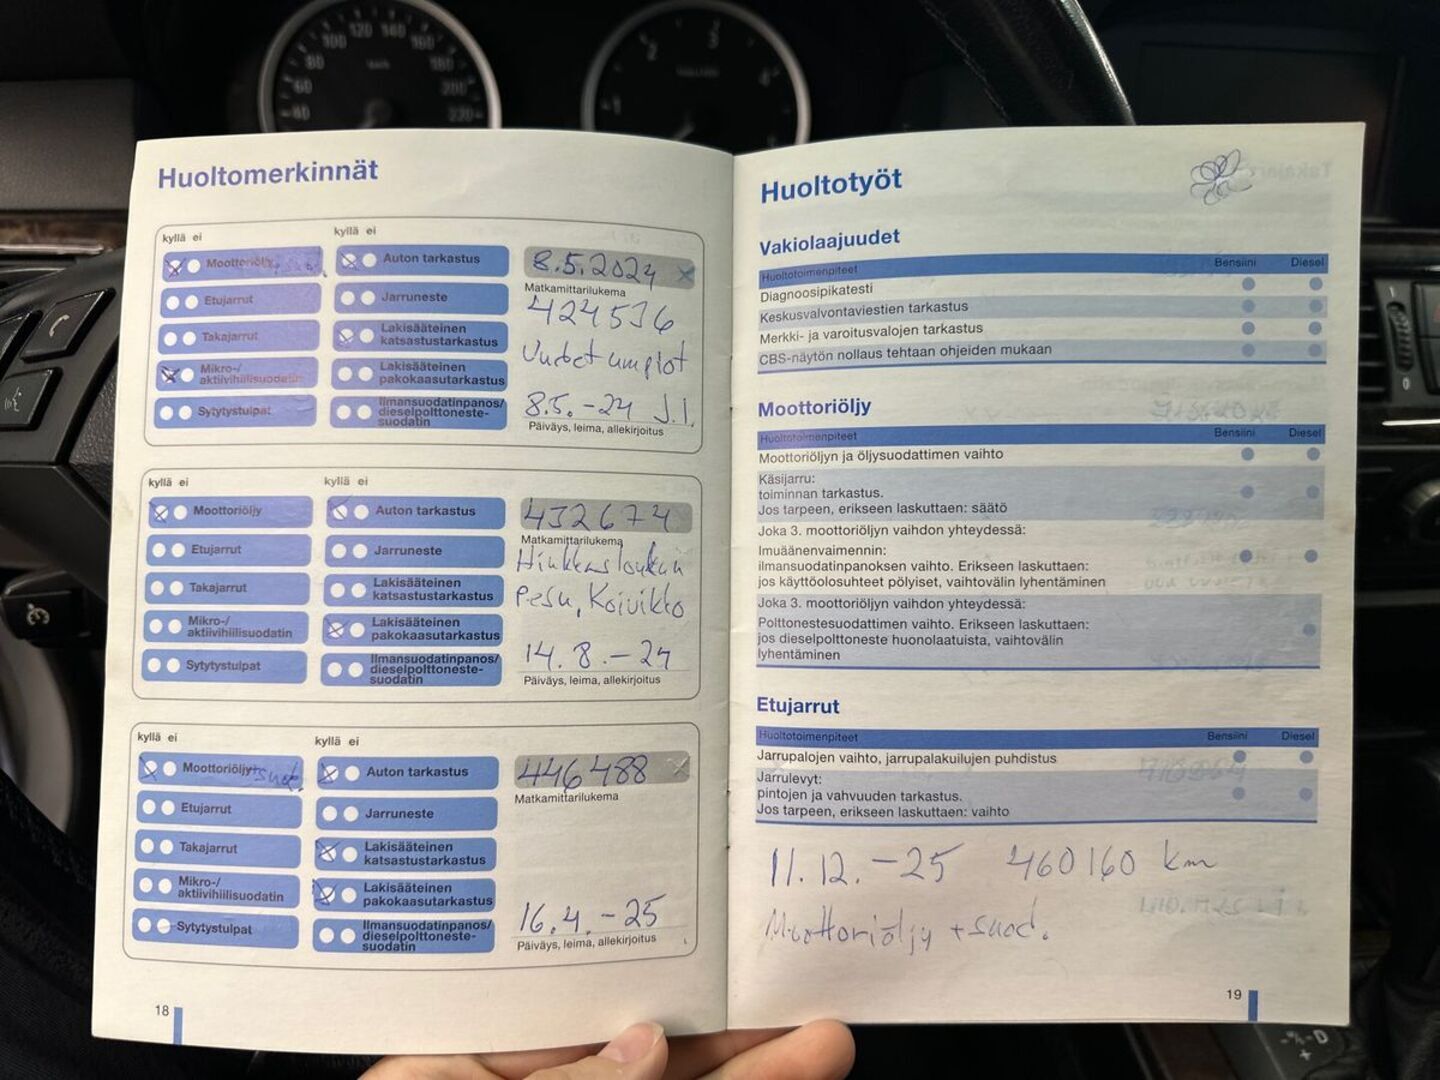 Huoltomerkinnät
kyllä ei
kyllä ei
Moottoriöljy
Auton tarkastus
8.5.2024
Matkamittarilukema
Etujarrut
Jarruneste
424536
Takajarrut
Lakisääteinen
katsastustarkastus
Uudet umpiot
Mikro-/
aktiivihiilisuodatin
Lakisääteinen
pakokaasutarkastus
Sytytystulpat
Ilmansuodatinpanos/
dieselpolttoneste-
suodatin
8.5.-24 J.I.
Päiväys, leima, allekirjoitus
kyllä ei
kyllä ei
Moottoriöljy
Auton tarkastus
432674
Matkamittarilukema
Etujarrut
Jarruneste
Takajarrut
Lakisääteinen
katsastustarkastus
Pesu, Koivikko
Mikro-/
aktiivihiilisuodatin
Lakisääteinen
pakokaasutarkastus
Sytytystulpat
Ilmansuodatinpanos/
dieselpolttoneste-
suodatin
14.8.-24
Päiväys, leima, allekirjoitus
kyllä ei
kyllä ei
Moottoriöljy +suod.
Auton tarkastus
446488
Matkamittarilukema
Etujarrut
Jarruneste
Takajarrut
Lakisääteinen
katsastustarkastus
Mikro-/
aktiivihiilisuodatin
Lakisääteinen
pakokaasutarkastus
Sytytystulpat
Ilmansuodatinpanos/
dieselpolttoneste-
suodatin
16.4.-25
Päiväys, leima, allekirjoitus
18
Huoltotyöt
Vakiolaajuudet
Huoltotoimenpiteet Bensiini Diesel
Diagnoosipikatesti
Keskusvalvontaviestien tarkastus
Merkki- ja varoitusvalojen tarkastus
CBS-näytön nollaus tehtaan ohjeiden mukaan
Moottoriöljy
Huoltotoimenpiteet Bensiini Diesel
Moottoriöljyn ja öljysuodattimen vaihto
Käsijarru:
toiminnan tarkastus.
Jos tarpeen, erikseen laskuttaen: säätö
Joka 3. moottoriöljyn vaihdon yhteydessä:
Imuäänenvaimennin:
ilmansuodatinpanoksen vaihto. Erikseen laskuttaen:
jos käyttöolosuhteet pölyiset, vaihtovälin lyhentäminen
Joka 3. moottoriöljyn vaihdon yhteydessä:
Polttonestesuodattimen vaihto. Erikseen laskuttaen:
jos dieselpolttoneste huonolaatuista, vaihtovälin
lyhentäminen
Etujarrut
Huoltotoimenpiteet Bensiini Diesel
Jarrupalojen vaihto, jarrupalakuilujen puhdistus
Jarrulevyt:
pintojen ja vahvuuden tarkastus.
Jos tarpeen, erikseen laskuttaen: vaihto
11.12.-25 460160 km
Moottoriöljy +suod.
19
60
80
100
120
140
160
180
200
220
km/h
1
2
3
4
D